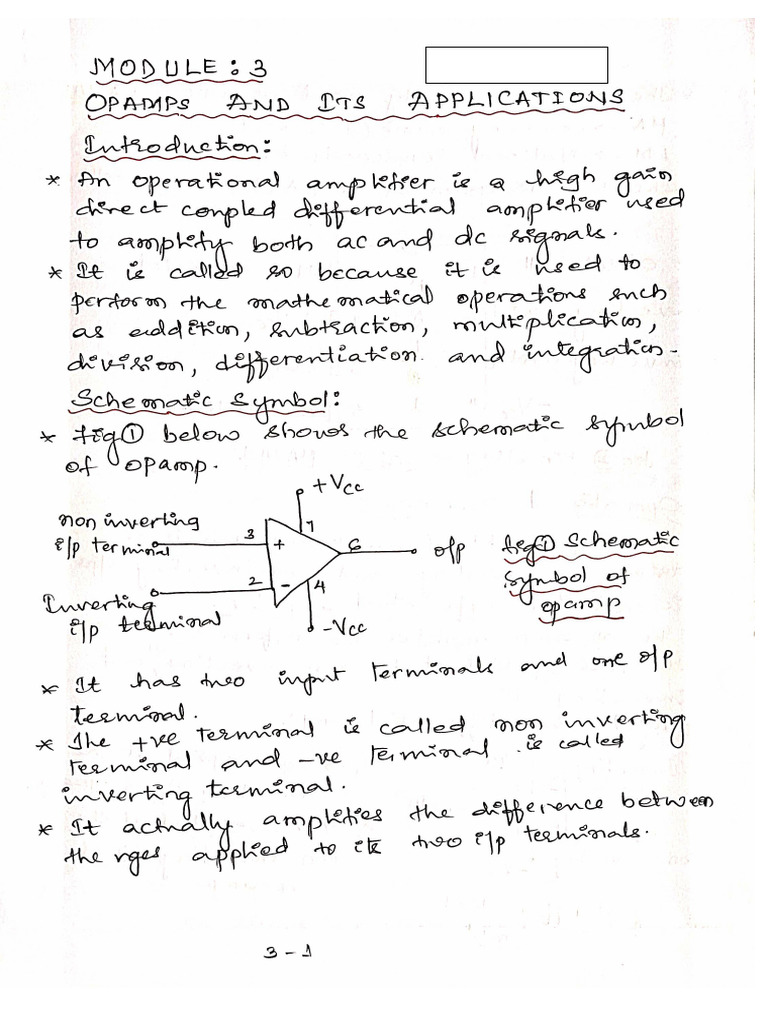 MODULE : 3
OPAMPS AND ITS APPLICATIONS
Introduction:
* An operational amplifier is a high gain
direct coupled differential amplifier used
to amplify both ac and dc signals.
* It is called so because it is used to
perform the mathematical operations such
as addition, subtraction, multiplication,
division, differentiation and integration.
Schematic Symbol:
* fig① below shows the schematic symbol
of opamp.
+Vcc
non inverting
i/p terminal
3
+
7
6
o/p
2
-
4
Inverting
i/p terminal
-Vcc
fig① Schematic
symbol of
opamp
* It has two input terminals and one o/p
terminal.
* The +ve terminal is called non inverting
terminal and -ve terminal is called
inverting terminal.
* It actually amplifies the difference between
the vges applied to its two i/p terminals.
3 - 1